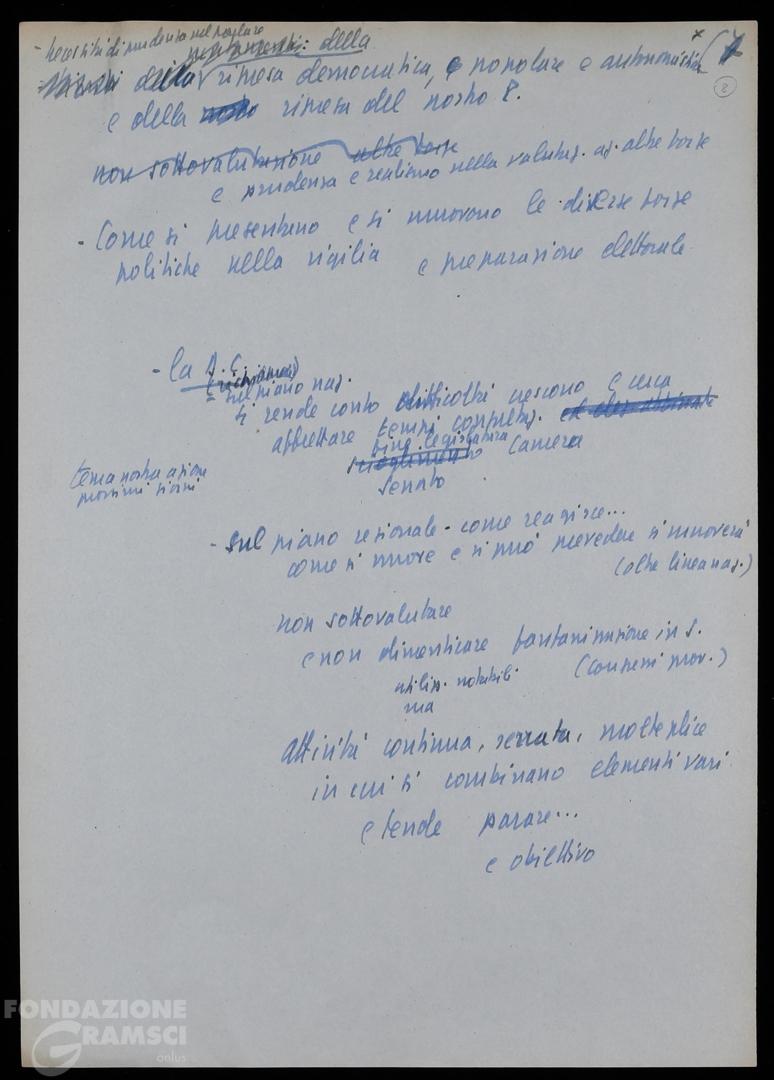 - Necessità di prudenza nel parlare
della
della ripresa democratica, e popolare e autonomistica
e della ripresa del nostro P.
non sottovalutazione altre forze
e prudenza e realismo nella valutaz. az. altre forze
- Come si presentano e si muovono le diverse forze
politiche nella vigilia e preparazione elettorale
- la D.C.
(richiamare)
= sul piano naz.
si rende conto difficoltà crescono e cerca
affrettare tempi
fine legislatura
scioglimento Camera
Senato
tema nostra azione
prossimi giorni
- sul piano regionale - come reagisce...
come si muove e si può prevedere si muoverà
(oltre linea naz.)
non sottovalutare
e non dimenticare fanfanizzazione in S.
utilizz. notabili (congressi prov.)
ma
attività continua, serrata, molteplice
in cui si combinano elementi vari
e tende parare...
e obiettivo
2
FONDAZIONE
GRAMSCI
onlus